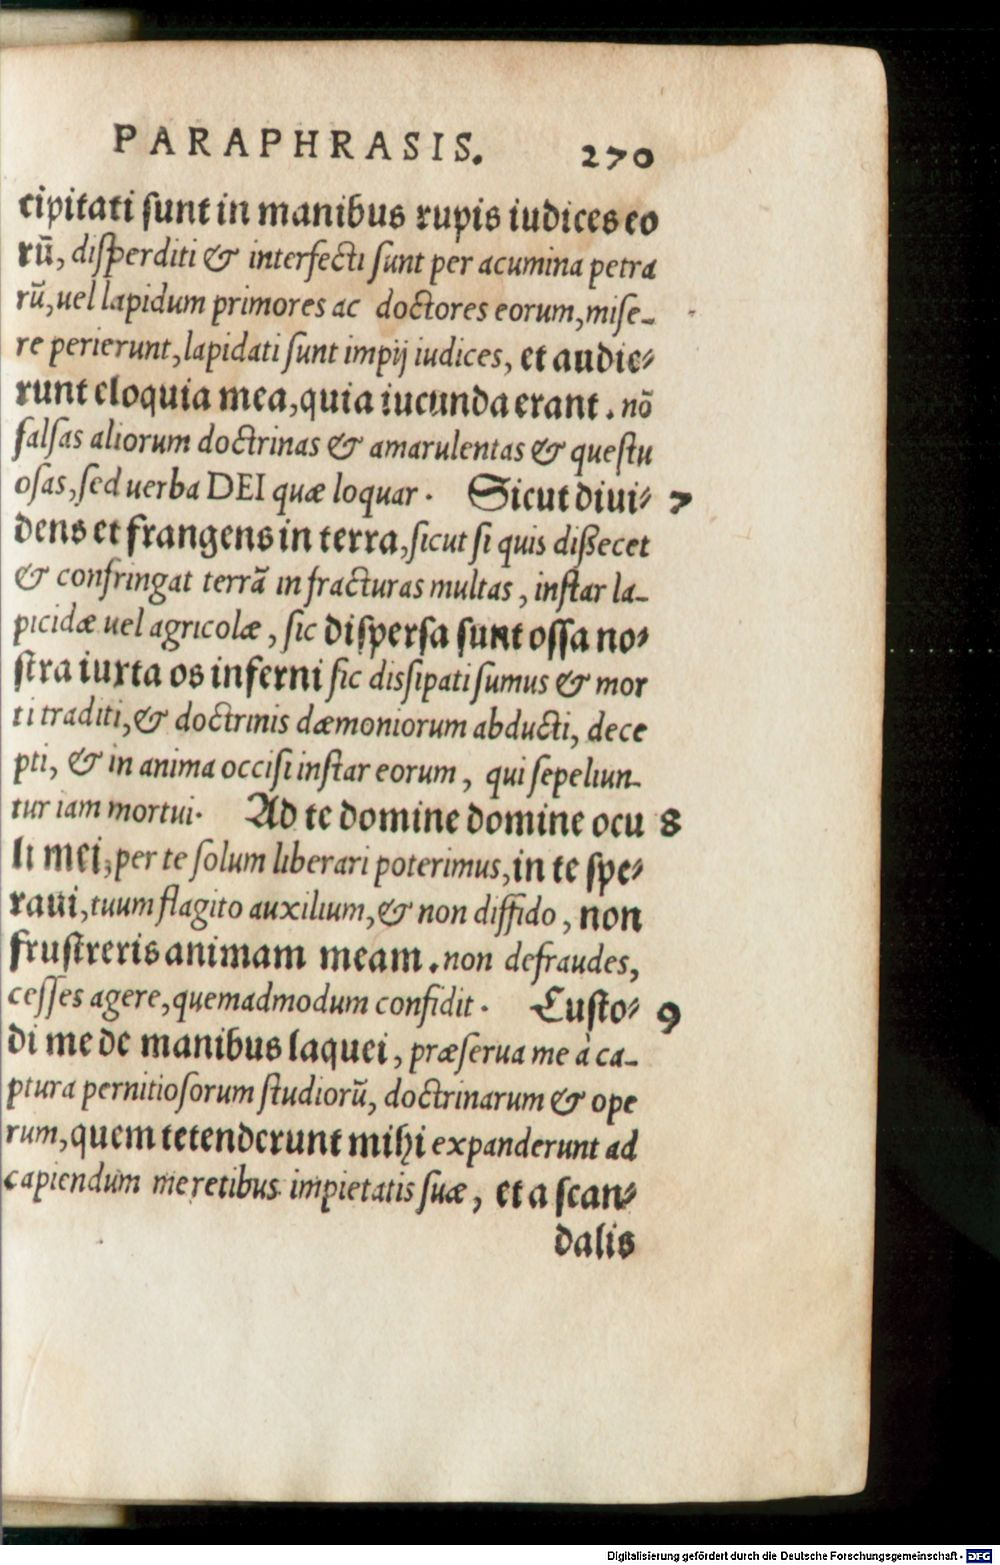 PARAPHRASIS. 270
cipitati ſunt in manibus rupis iudices eo
rū, diſperditi & interfecti ſunt per acumina petra
rū, uel lapidum primores ac doctores eorum, miſe-
re perierunt, lapidati ſunt impij iudices, et audie⸗
runt eloquia mea, quia iucunda erant. nō
falſas aliorum doctrinas & amarulentas & queſtu
oſas, ſed uerba DEI quæ loquar. Sicut diui⸗ 7
dens et frangens in terra, ſicut ſi quis dißecet
& confringat terrā in fracturas multas, inſtar la-
picidæ uel agricolæ, ſic diſperſa ſunt oſſa no⸗
ſtra iuxta os inferni ſic dissipati ſumus & mor
ti traditi, & doctrinis dæmoniorum abducti, dece
pti, & in anima occiſi inſtar eorum, qui ſepeliun-
tur iam mortui. Ad te domine domine ocu 8
li mei, per te ſolum liberari poterimus, in te ſpe⸗
raui, tuum flagito auxilium, & non diffido, non
fruſtreris animam meam. non defraudes,
ceſſes agere, quemadmodum confidit. Cuſto⸗ 9
di me de manibus laquei, præſerua me à ca-
ptura pernitioſorum ſtudiorū, doctrinarum & ope
rum, quem tetenderunt mihi expanderunt ad
capiendum me retibus impietatis ſuæ, et a ſcan⸗
dalis
Digitalisierung gefördert durch die Deutsche Forschungsgemeinschaft - DFG